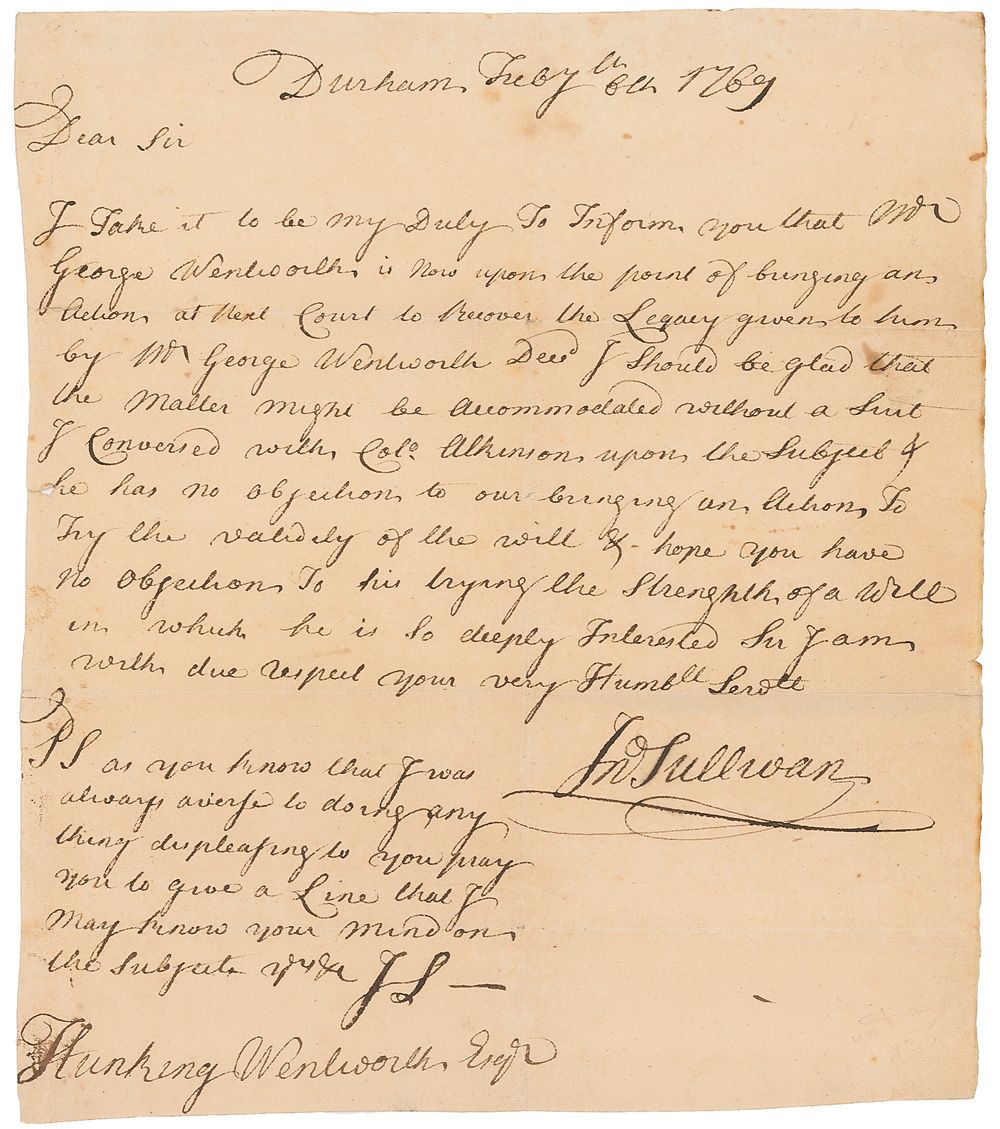 Durham Feby 6th 1769
Dear Sir
I Take it to be my Duty To Inform you that Mr
George Wentworth is Now upon the point of bringing an
Action at Next Court to Recover the Legacy given to him
by Mr George Wentworth Decd I Should be glad that
the Matter might be Accommodated without a Suit
I Conversed with Colo Atkinson upon the Subject &
he has no objection to our bringing an Action To
Try the validity of the will & hope you have
No Objection To his trying the Strenghth of a Will
in which he is So deeply Interested Sir I am
with due respect your very Humbll Servtt
Jno Sullivan
PS as you know that I was
always averse to doing any
thing displeasing to you pray
you to give a Line that I
May know your mind on
the Subject yrs &c JS —
Hunking Wentworth Esqr